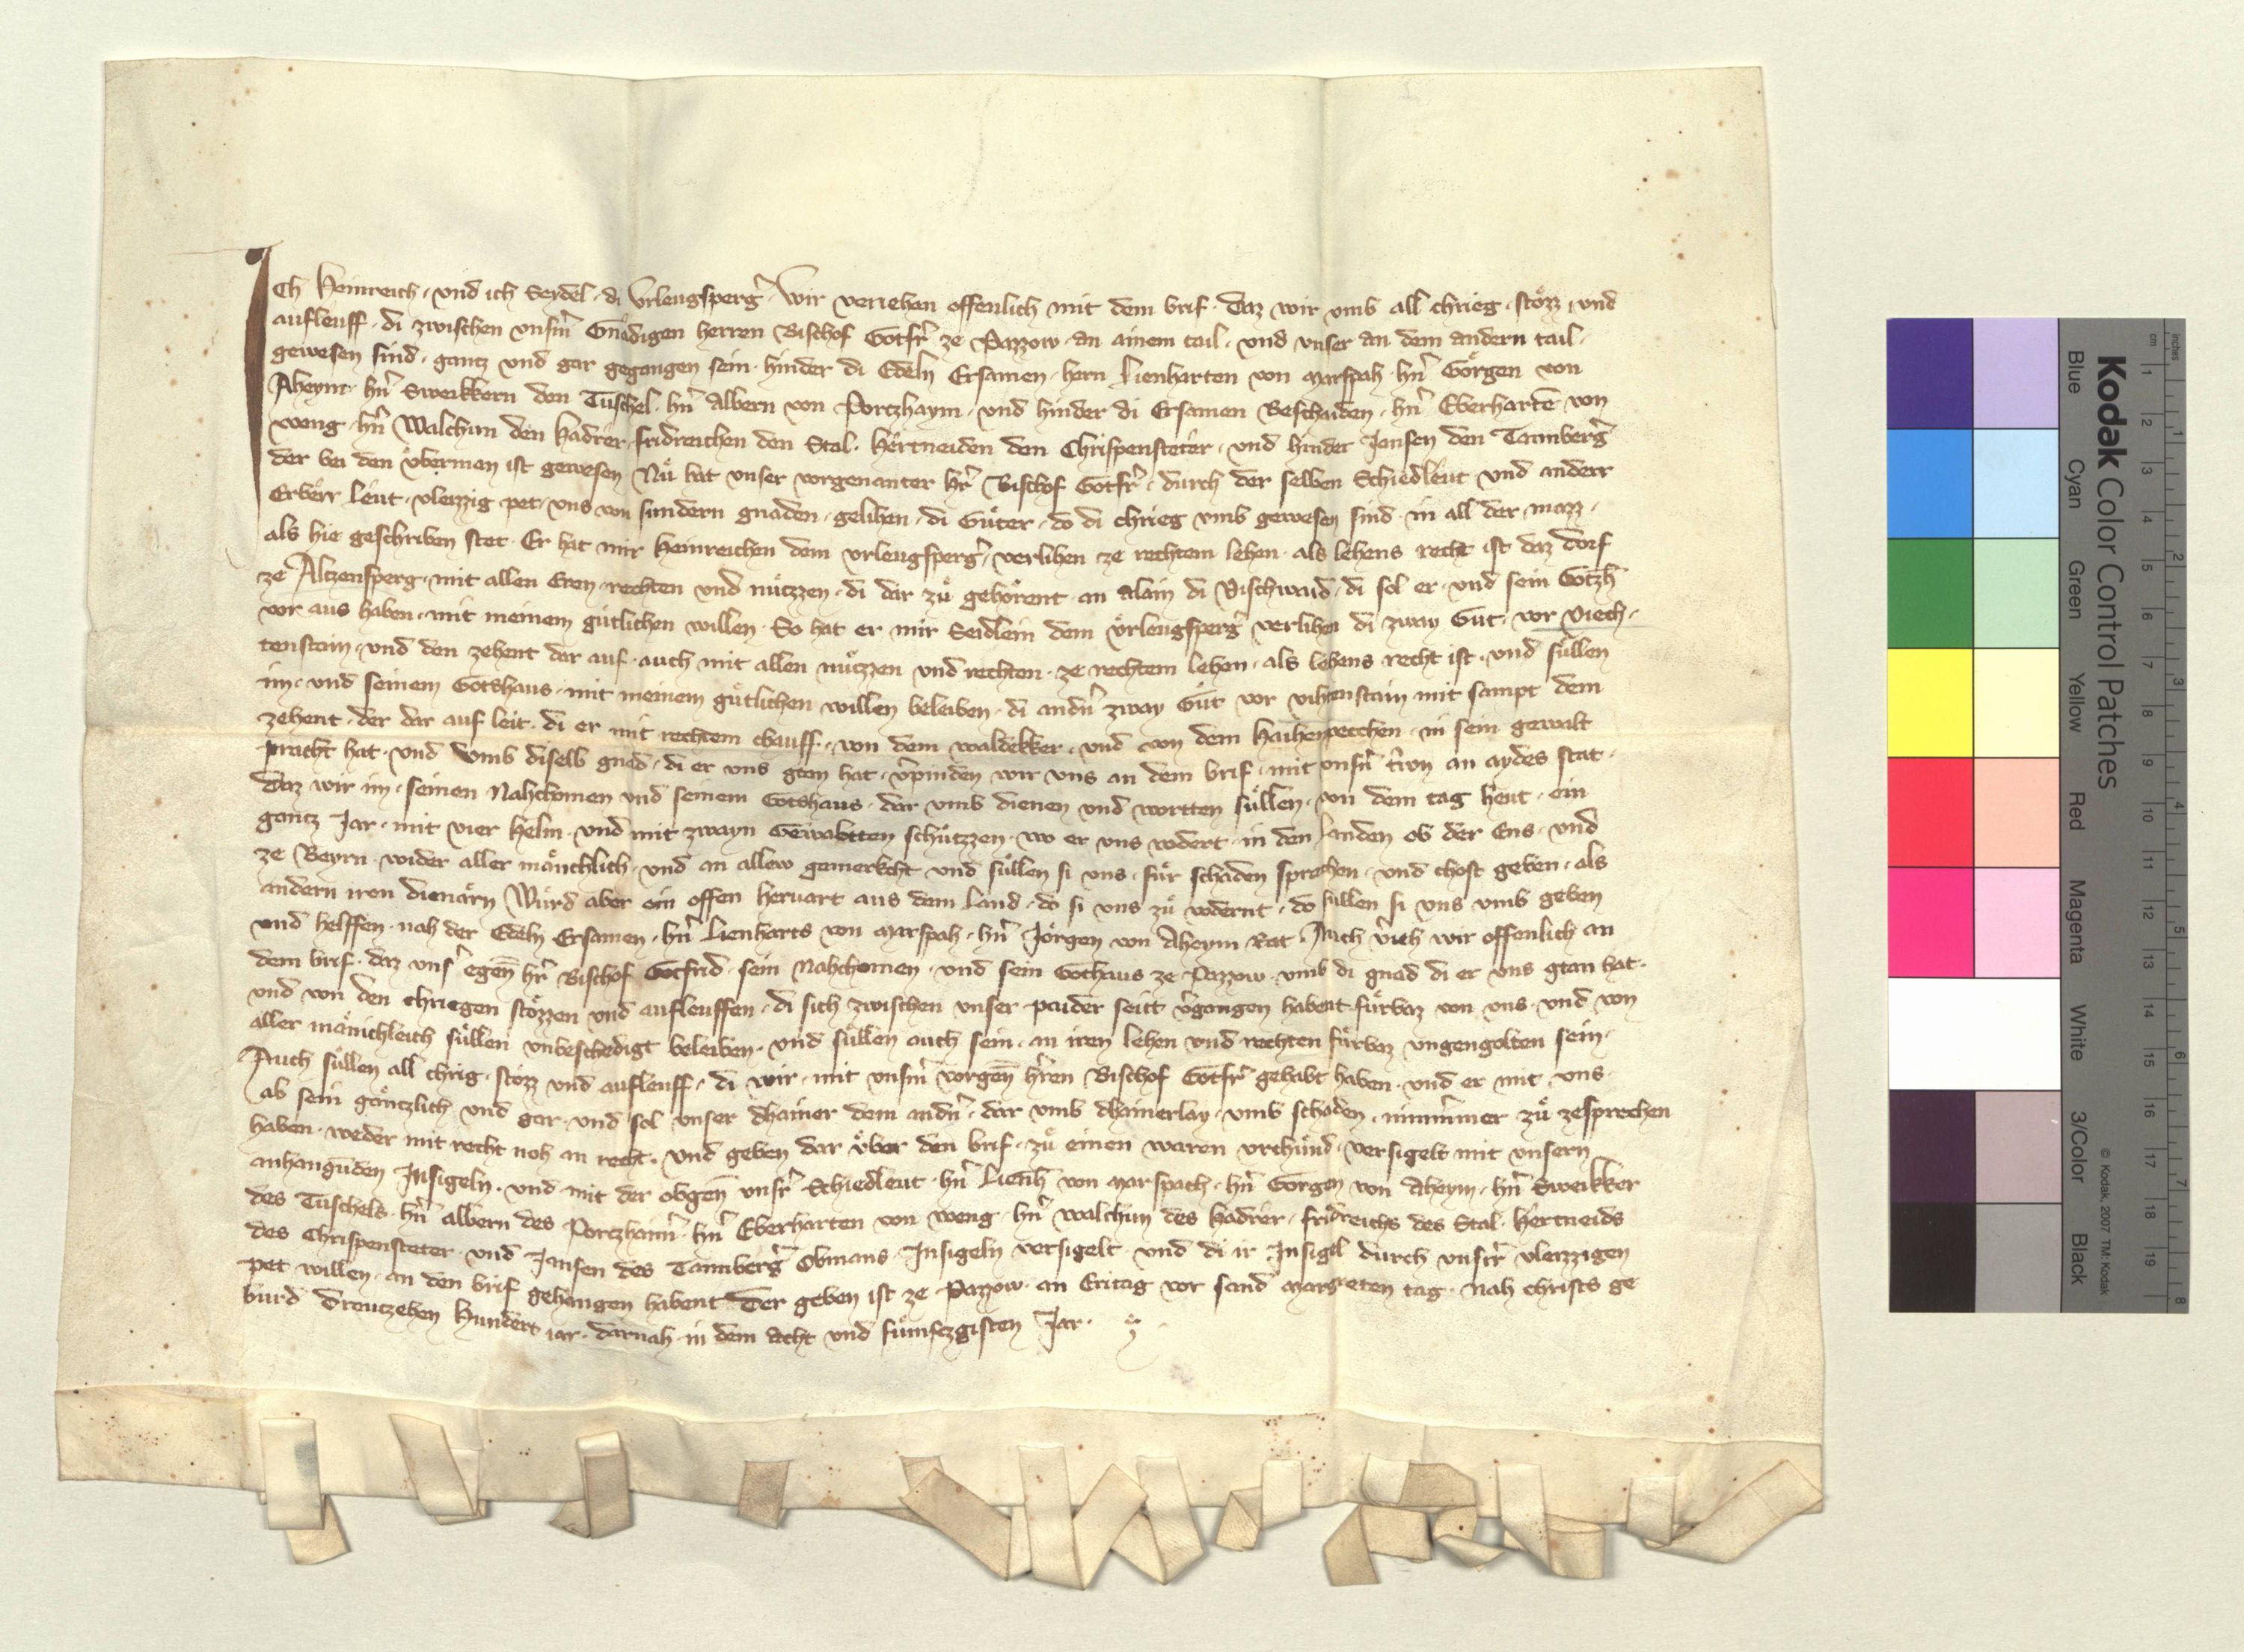 Ich Heinreich · und ich Seydel · di Vrleugsperg̃ · Wir veriehen offenlich mit dem brif · Daz wir vmb all chrieg · stözz · und
aufleuff · di zwischen vnsm̃ Gnädigen herren Bischof Gotfr̃ ze Pazzow · an ainem tail · und vnser an dem andern tail ·
gewesen sind · gantz und gar gegangen sein · hinder di Edeln Ersamen · hern Lienharten von Marspah · hñ Görgen von
Aheym · hñ Sweikkern den Tuschel · hñ Albern von Portzhaym · und hinder di Ersamen Beschaiden · hñ Eberhartē von
weng · hñ Walchun den Hadrer · fridreichen den Stal · Hertneiden den Chrispensteter · und hinder Jansen den Tannberg̃
der bei den vberman ist gewesen Nů hat vnser vorgenanter hr̃ Bischof Gotfr̃ · durch der selben Schiedleut und anderr
Erberr leut · vleizzig pet · vns von sundern gnaden · gelihen · di Güter · do di chrieg vmb gewesen sind · in all der mazz ·
als hie geschriben stet · Er hat mir Heinreichen dem vrleugsperg̃ · verlihen ze rechtem lehen · als lehens recht ist daz dorf
ze Altzensperg · mit allen Eren · rechten und nützzen · di dar zů gehörent · an alain di Vischwaid · di sol er · und sein Gotzh̄
vor aus haben · mit meinem gütlichen willen · So hat er mir Seidlein dem vrleugsperg̃ verlihen di zway Güt · vor Viech ·
tenstain · und den zehent dar auf · auch mit allen nützzen und rechten · ze rechtem lehen · als lehens recht ist · und süllen
im · und seinem Gotshaus · mit meinem gütlichen willen beleiben · di andñ zway Güt vor vihtenstain mit sampt dem
zehent · der dar auf leit · di er mit rechtem chauff · von dem waldekker · und von dem Haihenpecchen · in sein gewalt
pracht hat · und vmb diselb gnad · di er vns gtan hat · v̄pinden wir vns an dem brif · mit vnsñ trwn an aydes stat ·
Daz wir im · seinen Nahchomen und seinem Gotshaus · dar vmb dienen und wortten süllen · von dem tag heut · ein
gantz Jar · mit vier Helm · und mit zwayn Gewabtten schützzen · wo er vns vodert · in den landen ob der Ens · und
ze Beyrn · wider aller mänchlich · und an allew gemerkcht und süllen si vns · für schaden sprechen · und chost geben · als
andern iren dienärn Würd aber ein offen hervart aus dem Land · do si vns zů vodernt · do süllen si vns vmb geben
und helffen · nah der Edeln Ersamen · hñ Lienharts von Marspah · hñ Jörgen von Aheym Rat Auch v̄ieh wir offenlich an
dem brif · daz vns̃ egeñ hr̃ Bischof Gotfrid · sein Nahchomen · und sein Gothaus ze Pazzow · vmb di gnad di er vns gtan hat ·
und von den chriegen stözzen und aufleuffen · di sich zwischen vnser paider seitt v̄gangen habent · fürbaz von vns · und von
aller mänichleich süllen vnbeschedigt beleiben · und süllen auch sein · an iren lehen und rechten fürbaz vngengolten sein ·
Auch süllen all chrig · stözz und aufleuff · di wir · mit vnsm̃ vorgeñ hr̃ren Bischof Gotfr̃ gehabt haben · und er mit vns ·
ab sein gäntzlich und gar · und sol vnser dhainer dem andñ · dar vmb dhainerlay · vmb schaden · nimmer zů zesprechen
haben · weder mit recht noh an recht · und geben dar vber den brif · zů einen waren vrchünd · versigelt mit vnsern
anhangunden Insigeln · und mit der obgeñ vnsr̃ Schiedleut · hñ Lienh̄ von Marspach · hñ Görgen von Aheym · hñ Sweikker
des Tuschels · hñ albern des Portzhaim̃ · hñ Eberharten von weng · hñ walchun des Hadrer · fridreichs des Stal · Hertneids
des Chrispensteter · und Jansen des Tannberg̃ Obmans · Insigeln versigelt · und di ir Insigel durch vnsrr̃ vleizzigen
pet willen · an den brif gehangen habent Der geben ist ze Pazzow · an Eritag vor sand Margreten tag · nah christs ge
burd Dreutzehen Hundert iar · darnah · in dem Acht und fümftzgisten Jar ·
Kodak Color Control Patches
© Kodak, 2007 TM: Kodak
Blue Cyan Green Yellow Red Magenta White 3/Color Black
cm 1 2 3 4 5 6 7 8 9 10 11 12 13 14 15 16 17 18 19
inches 1 2 3 4 5 6 7 8